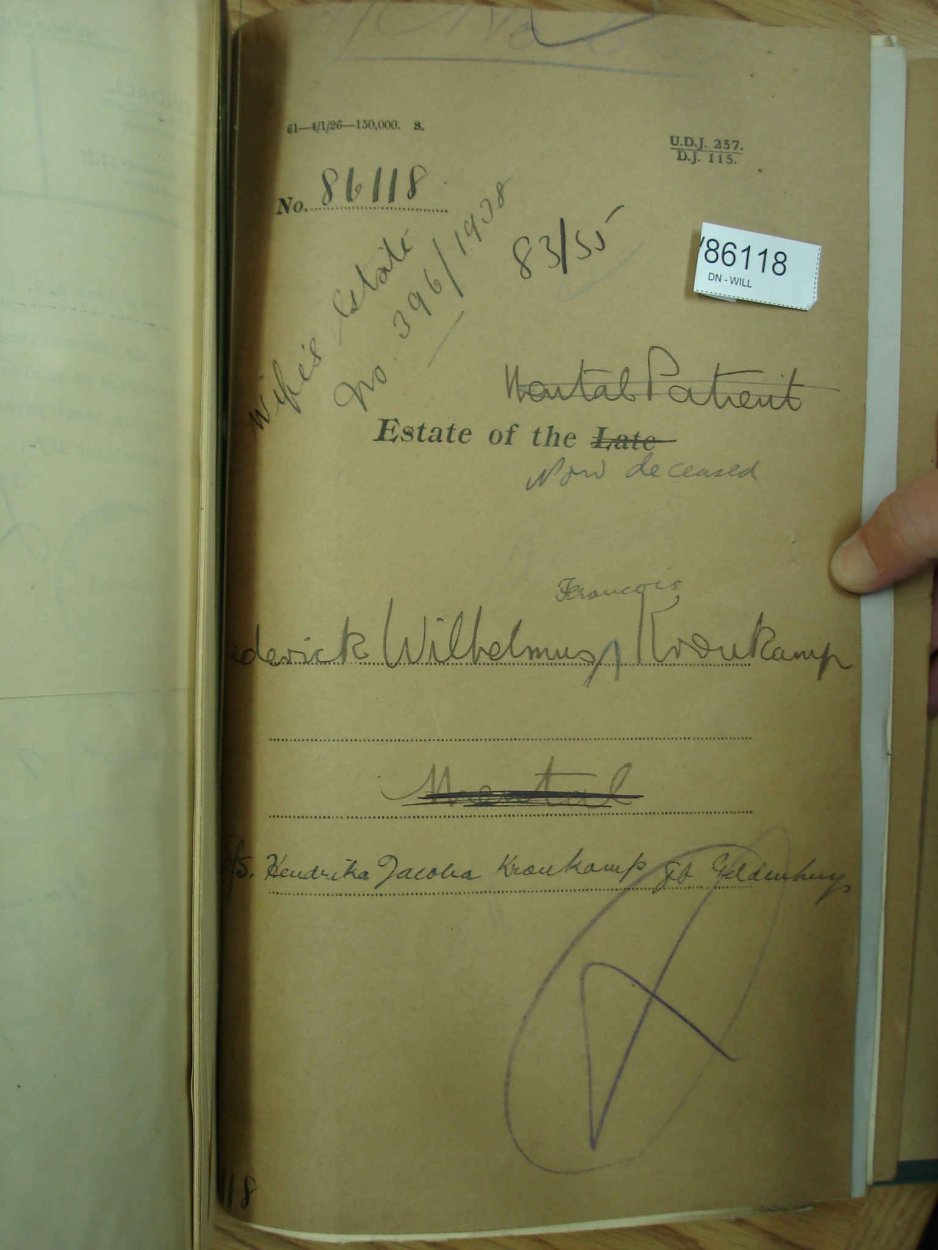 61—4/1/26—150,000. S.
U.D.J. 257.
D.J. 115.
No. 86118
Wife's Estate
No. 396/1938
83/55
/86118
DN - WILL
Mental Patient
Estate of the Late
Now deceased
Francois
ederick Wilhelmus Kronkamp
Mental
/s. Hendrika Jacoba Kronkamp gb Geldenhuys
118